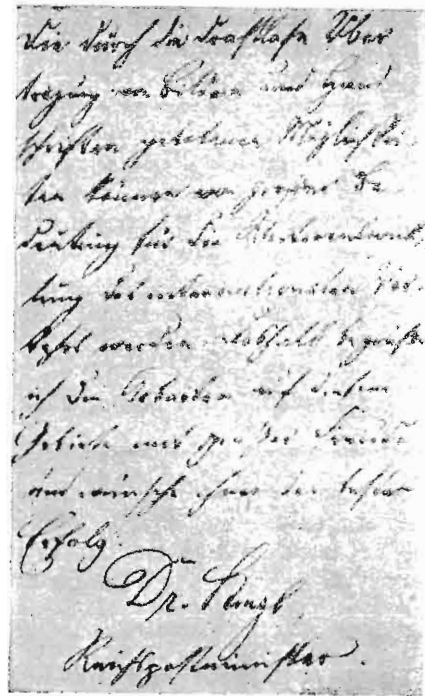 Die durch die drahtlose Über
tragung von Bildern und Hand
schriften gebotenen Möglichkei
ten können von großer Be
deutung für die Weiterentwick
lung des internationalen Ver
kehrs werden. Deshalb begrüße
ich die Arbeiten auf diesem
Gebiete mit großer Freude
und wünsche ihnen den besten
Erfolg.
Dr. Stingl
Reichspostminister.